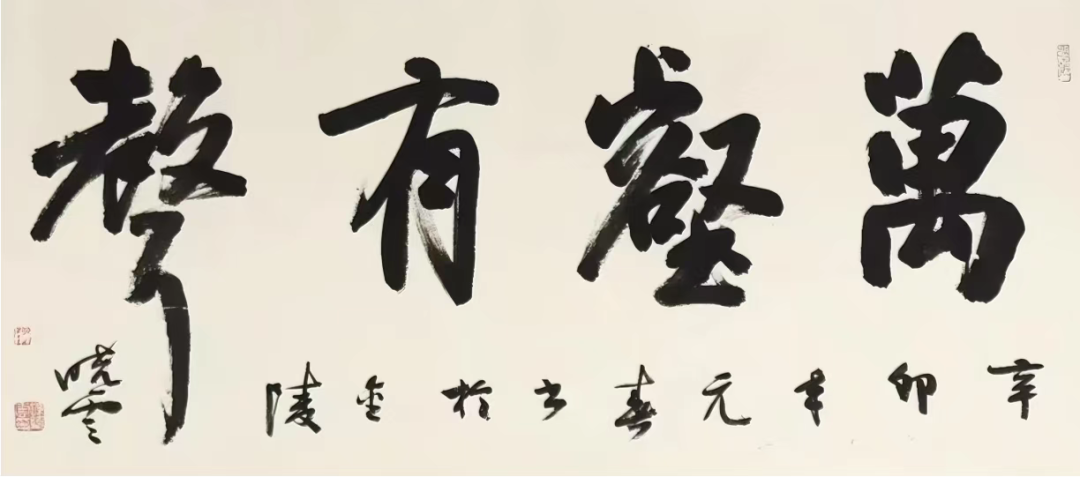 萬壑有聲
辛卯年元春书於金陵
晓雲